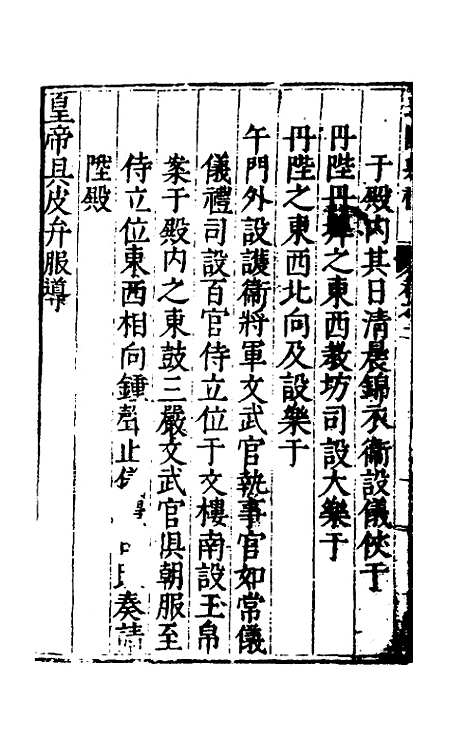 于殿内其日清晨錦衣衞設儀仗于
丹陛丹墀之東西教坊司設大樂于
丹陛之東西北向及設樂于
午門外設護衞將軍文武官執事官如常儀
儀禮司設百官侍立位于文樓南設玉帛
案于殿内之東鼓三嚴文武官俱朝服至
侍立位東西相向鍾聲止 奏請
陞殿
皇帝具皮弁服導